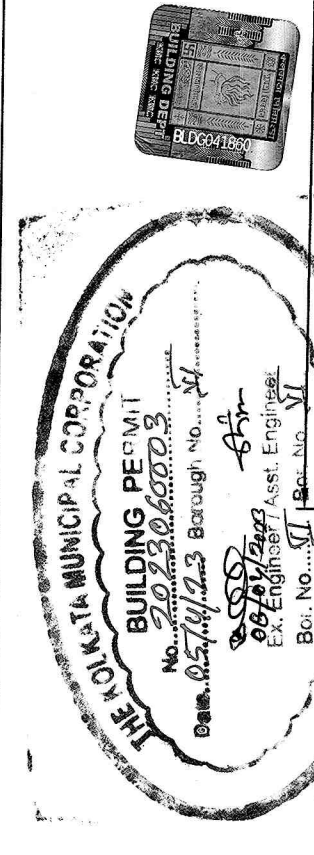 BUILDING DEPT
BLDG041860
KMC KMC KMC
THE KOLKATA MUNICIPAL CORPORATION
BUILDING PERMIT
No. 2023060003
Date. 05/4/23 Borough No. VI
Ex. Engineer / Asst. Engineer
Bor. No. VI Bor. No. VI